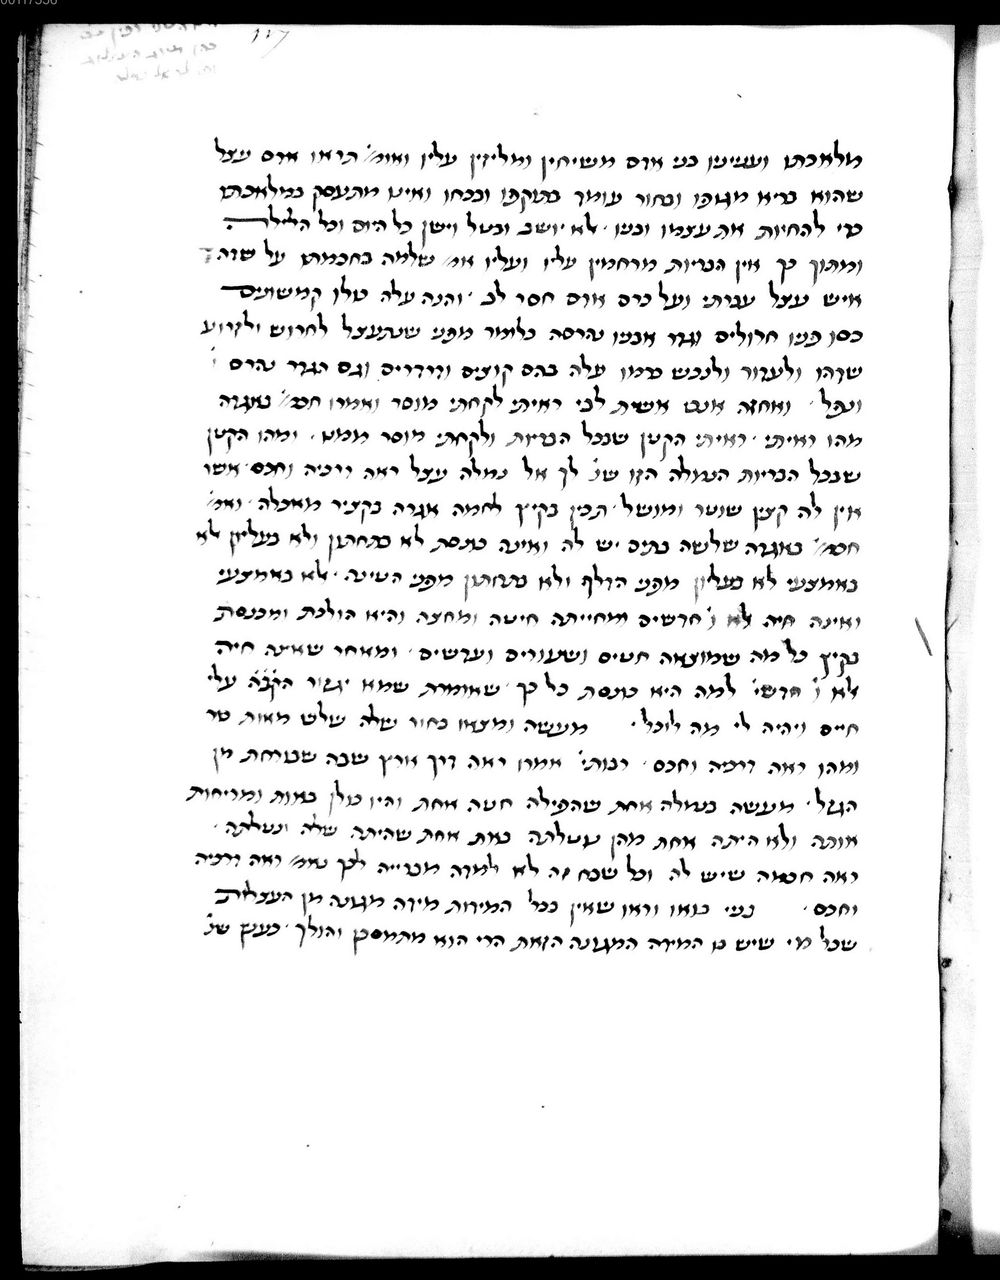 מלאכתו ועניינו בני אדם משיחין ומליזין עליו ואומ' תראו אדם עצל
שהוא בריא מגופו ובחור עומד בתוקפו ובכחו ואינו מתעסק במלאכתו
כדי להחיות את עצמו ובניו לא יושב ובטל וישן כל היום וכל הלילה
ומתוך כך אין הבריות מרחמין עליו ועליו אמ' שלמה בחכמתו על שדה
איש עצל עברתי ועל כרם אדם חסר לב והנה עלה כולו קמשונים
כסו פניו חרולים וגדר אבניו נהרסה כלומר מפני שנתעצל לחרוש ולזרוע
שדהו ולעדור ולנכש כרמו עלה בהם קוצים ודרדרים וגם הגדר נהרס
ונפל ואחזה אנכי אשית לבי ראיתי לקחתי מוסר ואמרו חכמ' באגדה
מהו ראיתי ראיתי הקטן שבכל הבריות ולקחתי מוסר ממנו ומהו הקטן
שבכל הבריות הנמלה הזו שנ' לך אל נמלה עצל ראה דרכיה וחכם אשר
אין לה קצין שוטר ומושל תכין בקיץ לחמה אגרה בקציר מאכלה ואמ'
חכמ' באגדה שלשה בתים יש לה ואינה כונסת לא בתחתון ולא בעליון לא
באמצעי לא בעליון מפני הדלף ולא בתחתון מפני הטינה לא באמצעי
ואינה חיה לא ו' חדשים ומחייתה חיטה ומחצה והיא הולכת ומכנסת
בקיץ כל מה שמוצאה חטים ושעורים ועדשים ומאחר שאינה חיה
לא ו' חדשי' למה היא כונסת כל כך שאומרת שמא יגזור הקב"ה עלי
חיים ויהיה לי מה לוכל מעשה ומצאו בחור שלה שלש מאות כור
ומהו ראה דרכיה וחכם רבותי' אמרו ראה דרך ארץ שבה שבורחת מן
הגזל מעשה בנמלה אחת שהפילה חטה אחת והיו כולן באות ומריחות
אותה ולא היתה אחת מהן נוטלתה באת אחת שהיתה שלה ונטלתה
ראה חכמה שיש לה וכל שבח זה לא למדה מבריה לכך נאמ' ראה דרכיה
וחכם בני בואו וראו שאין בכל המידות מידה מגונה מן העצלות
שכל מי שיש בו המידה המגונה הזאת הרי הוא מתמסכן והולך כענין שנ'